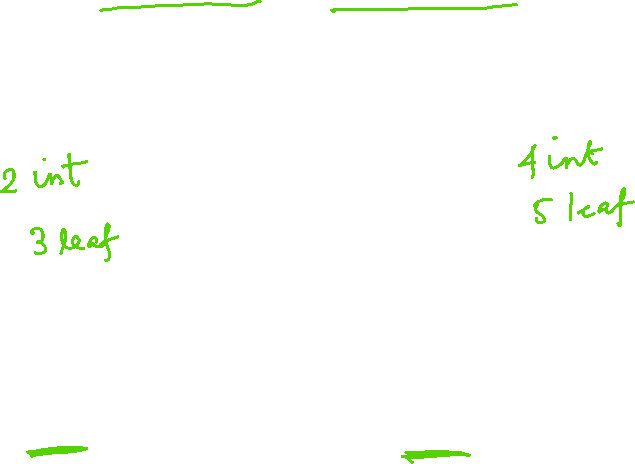 2 int
3 leaf
4 int
5 leaf